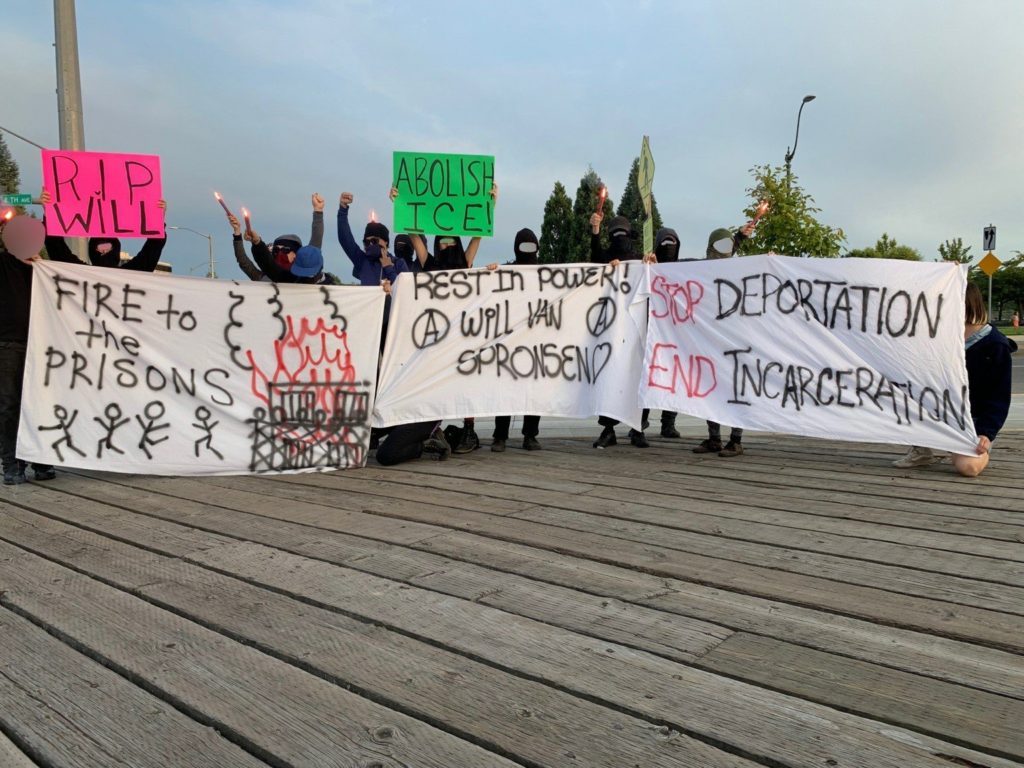 RIP
WILL
ABOLISH
ICE!
E TH AVE
FIRE to
the
PRISONS
REST IN POWER!
Ⓐ WILL VAN Ⓐ
SPRONSEN♡
STOP DEPORTATION
END INCARCERATION